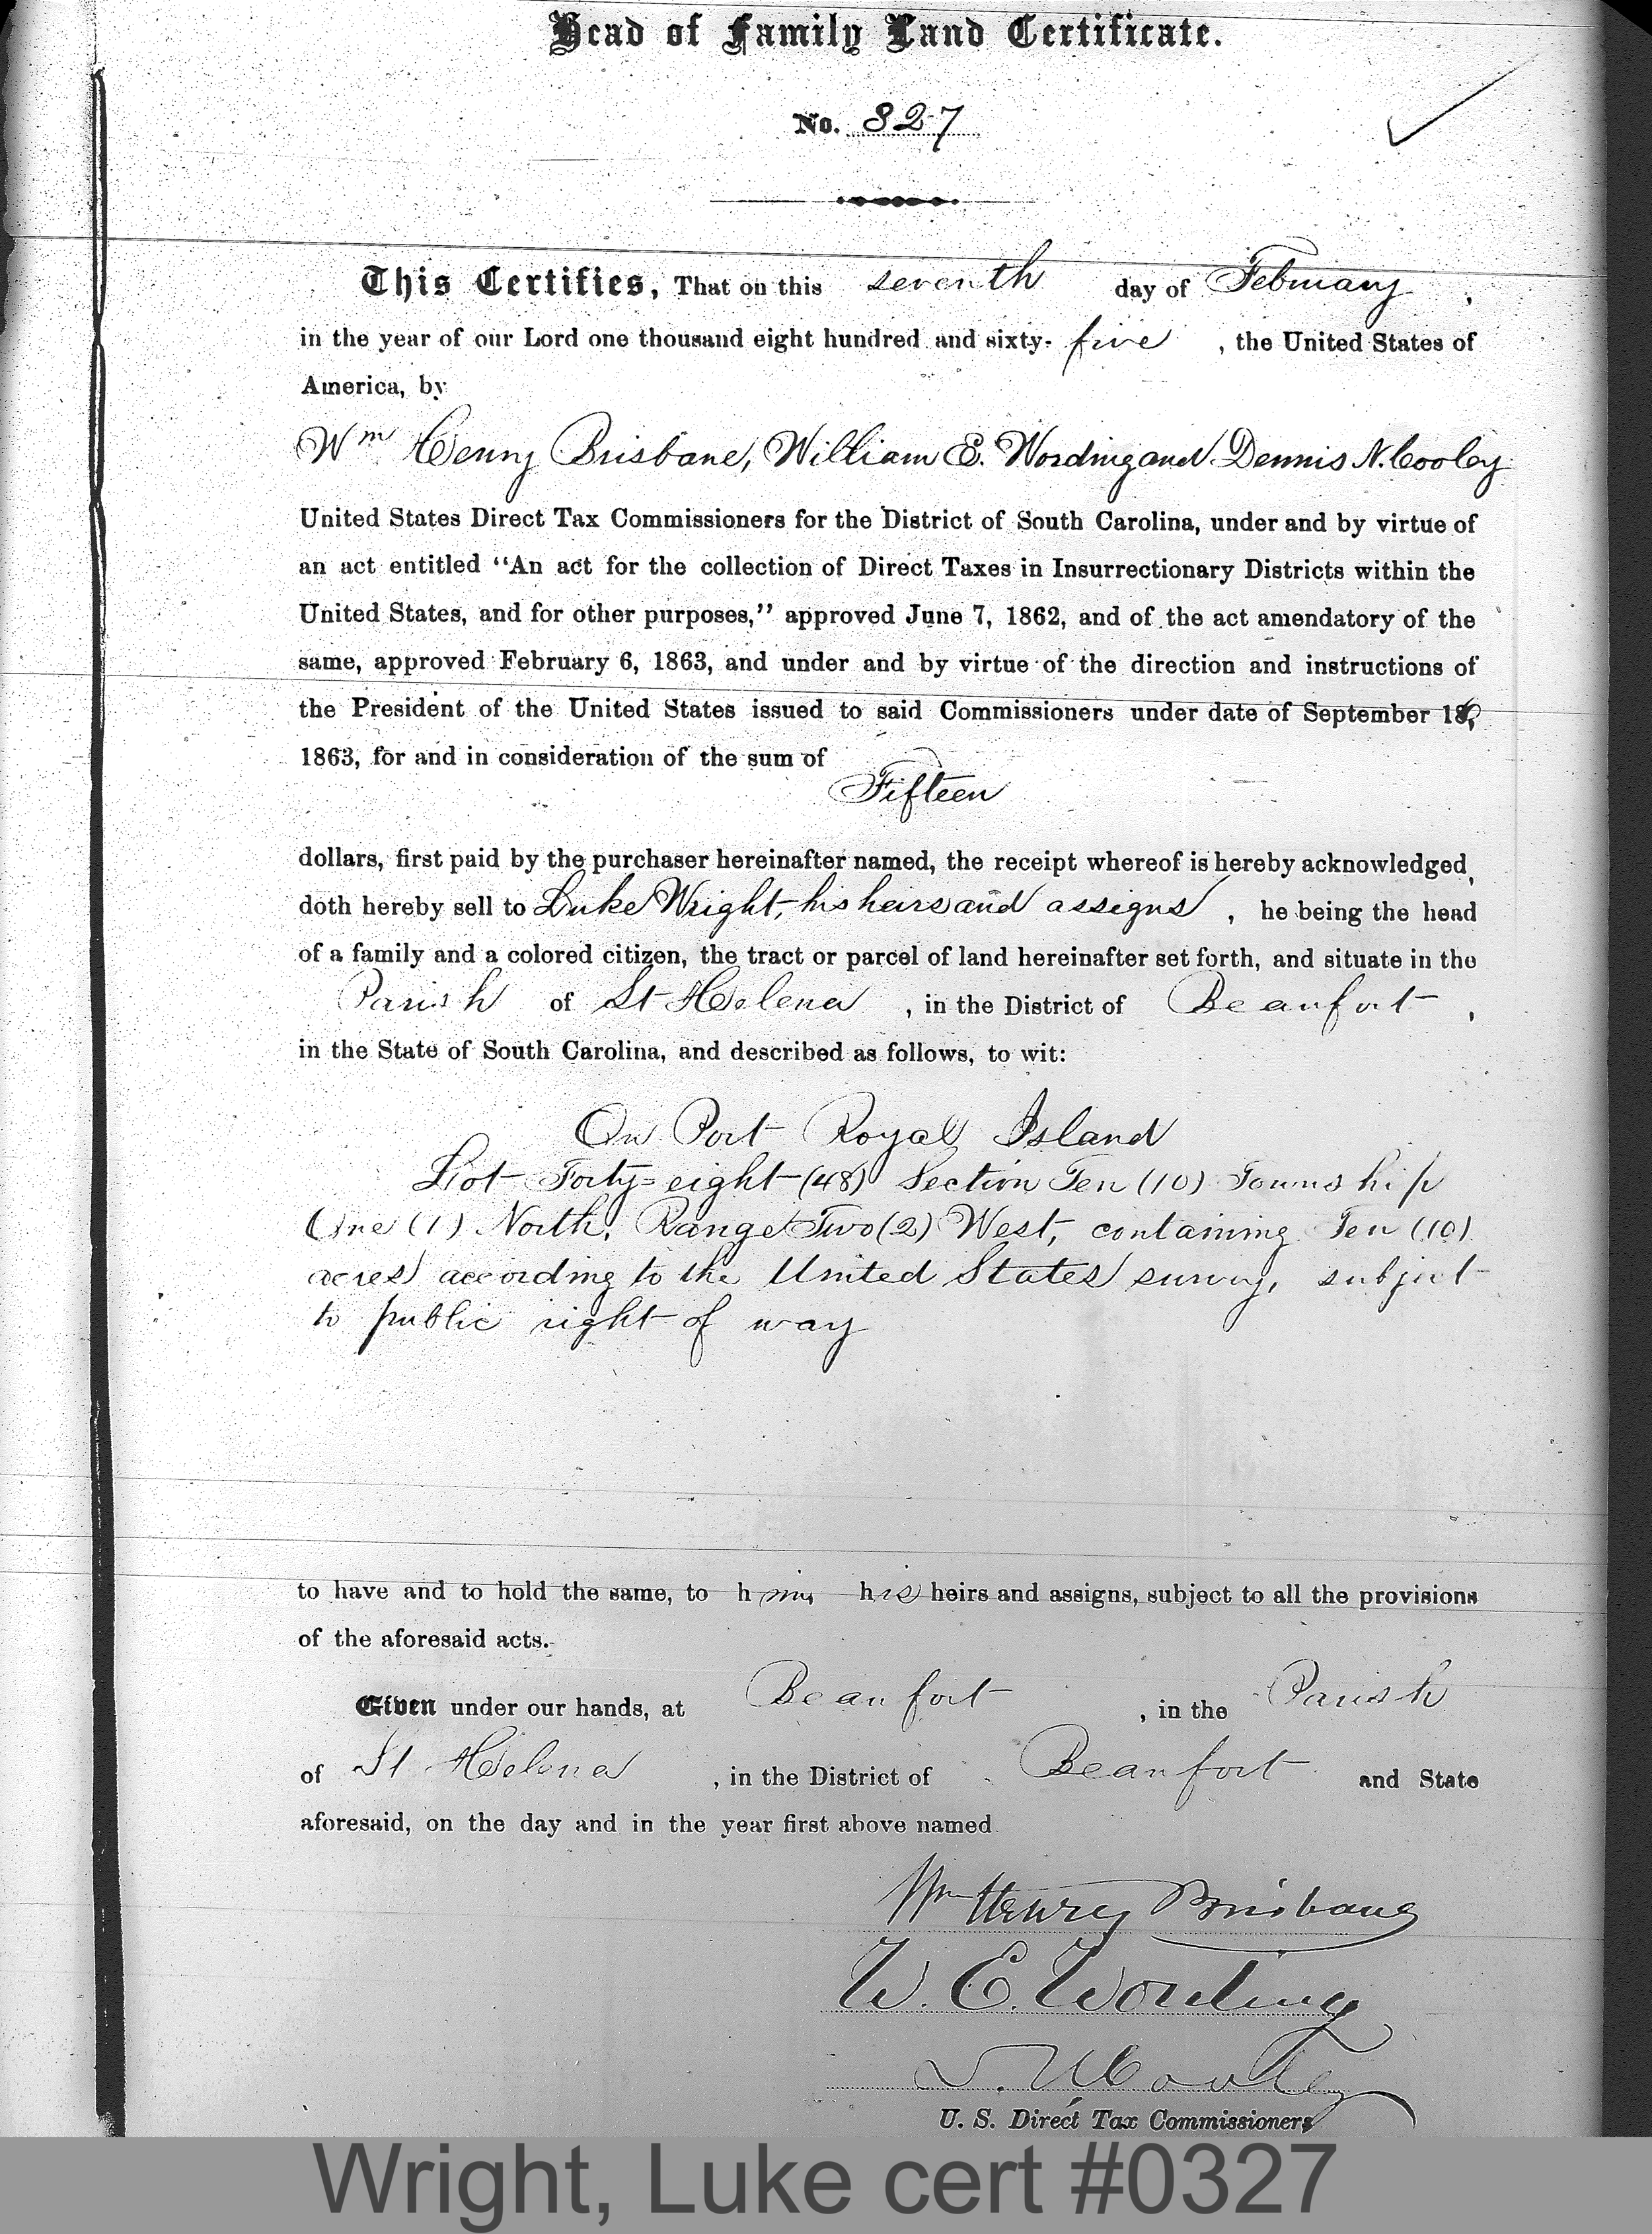 Head of Family Land Certificate.
No. 327
This Certifies, That on this seventh day of February,
in the year of our Lord one thousand eight hundred and sixty-five, the United States of
America, by
Wm Henry Brisbane, William E. Wording and Dennis N. Cooley
United States Direct Tax Commissioners for the District of South Carolina, under and by virtue of
an act entitled "An act for the collection of Direct Taxes in Insurrectionary Districts within the
United States, and for other purposes," approved June 7, 1862, and of the act amendatory of the
same, approved February 6, 1863, and under and by virtue of the direction and instructions of
the President of the United States issued to said Commissioners under date of September 16,
1863, for and in consideration of the sum of
Fifteen
dollars, first paid by the purchaser hereinafter named, the receipt whereof is hereby acknowledged,
doth hereby sell to Luke Wright, his heirs and assigns, he being the head
of a family and a colored citizen, the tract or parcel of land hereinafter set forth, and situate in the
Parish of St Helena, in the District of Beaufort,
in the State of South Carolina, and described as follows, to wit:
On Port Royal Island
Lot Forty-eight (48) Section Ten (10) Township
One (1) North, Range Two (2) West, containing Ten (10)
acres according to the United States survey, subject
to public right of way
to have and to hold the same, to him his heirs and assigns, subject to all the provisions
of the aforesaid acts.
Given under our hands, at Beaufort, in the Parish
of St Helena, in the District of Beaufort and State
aforesaid, on the day and in the year first above named
Wm Henry Brisbane
W. E. Wording
D. N. Cooley
U. S. Direct Tax Commissioners
Wright, Luke cert #0327